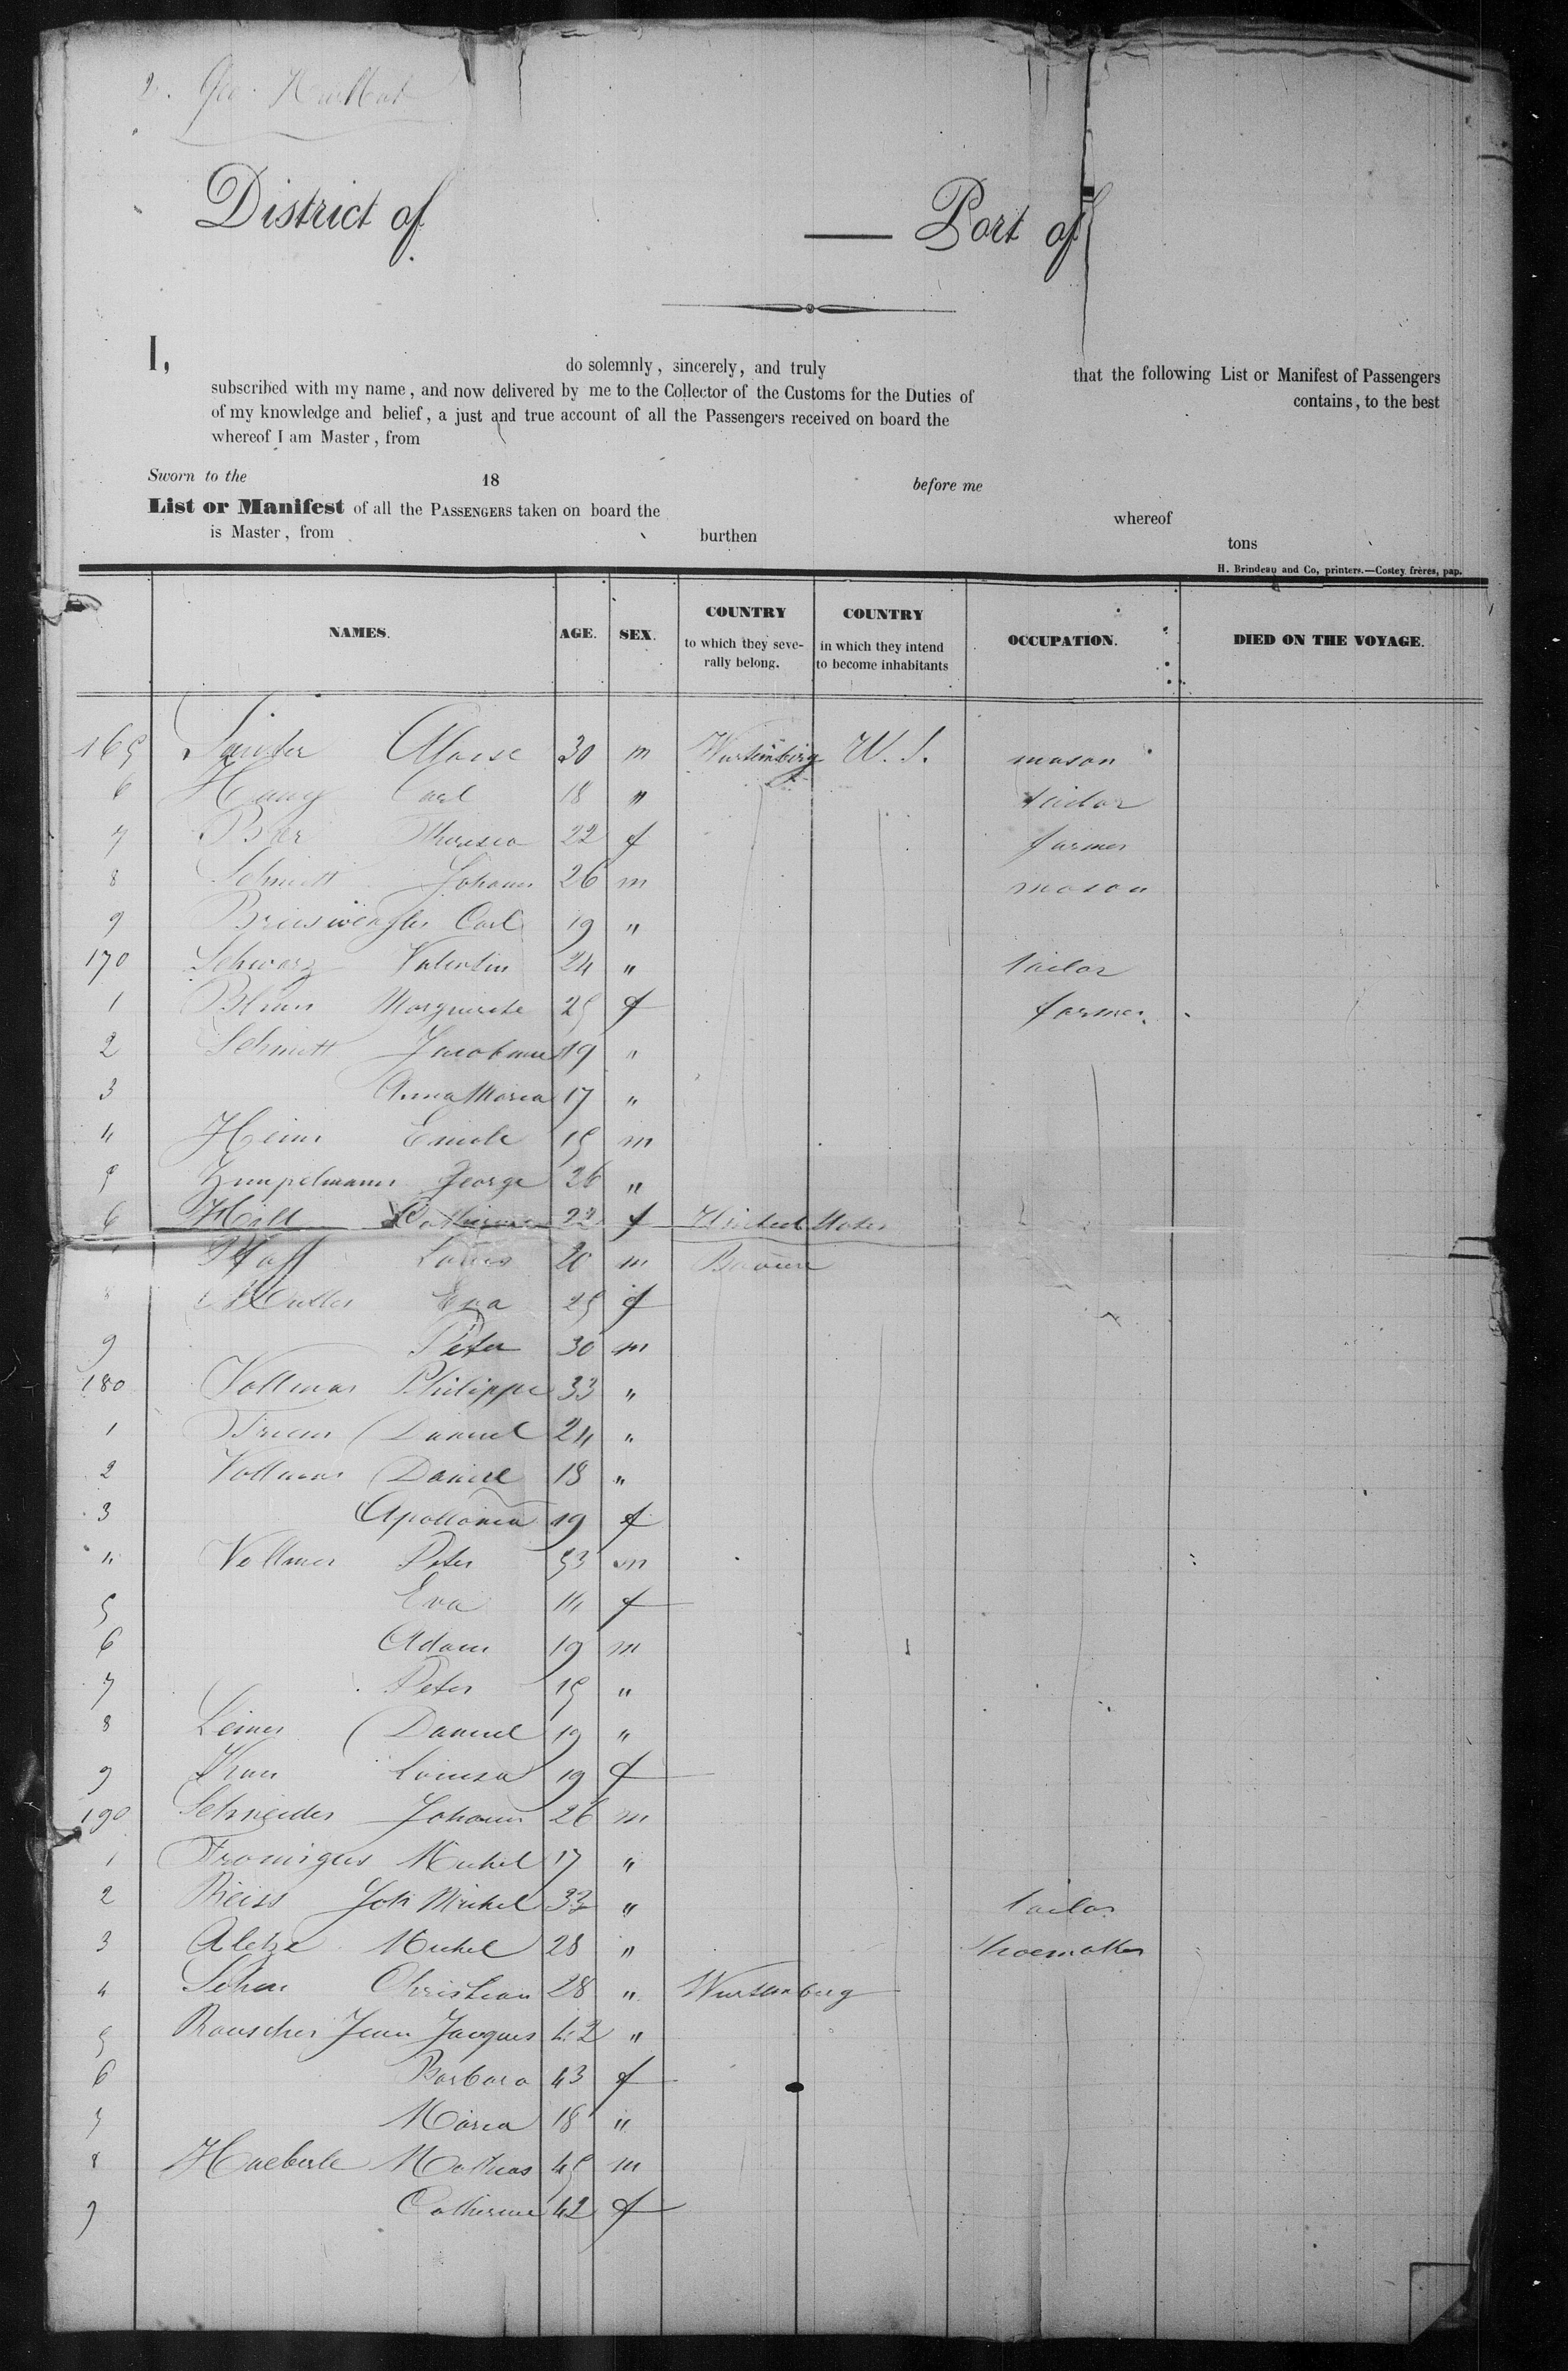 2. Geo. Hurlbut
District of — Port of
I, do solemnly, sincerely, and truly that the following List or Manifest of Passengers
subscribed with my name, and now delivered by me to the Collector of the Customs for the Duties of contains, to the best
of my knowledge and belief, a just and true account of all the Passengers received on board the
whereof I am Master, from
Sworn to the 18 before me
List or Manifest of all the PASSENGERS taken on board the whereof
is Master, from burthen tons
H. Brindeau and Co, printers.—Costey frères, pap.
NAMES. AGE. SEX. COUNTRY to which they severally belong. COUNTRY in which they intend to become inhabitants OCCUPATION. DIED ON THE VOYAGE.
165 30 m Wurtemberg U. S. mason
6 Haug Carl 18 " tailor
7 Theresia 22 f farmer
8 Schmitt Johann 26 m mason
9 Carl 19 "
170 Schwarz Valentin 24 " tailor
1 Blum Marguerite 25 f farmer
2 Schmitt 19 "
3 Anna Maria 17 "
4 Heim Emile 15 m
5 Zimpelmann George 26 "
6 Hill Catherine 22 f United States
Pfaff Louis 20 m Baviere
8 Muller Eva 25 f
9 Peter 30 m
180 Vollmar Philippe 33 "
1 Daniel 24 "
2 Vollmar Daniel 18 "
3 Apollonia 19 f
4 Vollmer Peter 53 m
5 Eva 14 f
6 Adam 19 m
7 Peter 15 "
8 Leiner Daniel 19 "
9 Louisa 19 f
190 Schneider Johann 26 m
1 Michel 17 "
2 Reiss Joh Michel 33 " tailor
3 Michel 28 " shoemaker
4 Christian 28 " Wurtemberg
5 Rauscher Jean Jacques 42 "
6 Barbara 43 f
7 Maria 18 "
8 Haeberle Mathias 45 m
9 Catherine 42 f